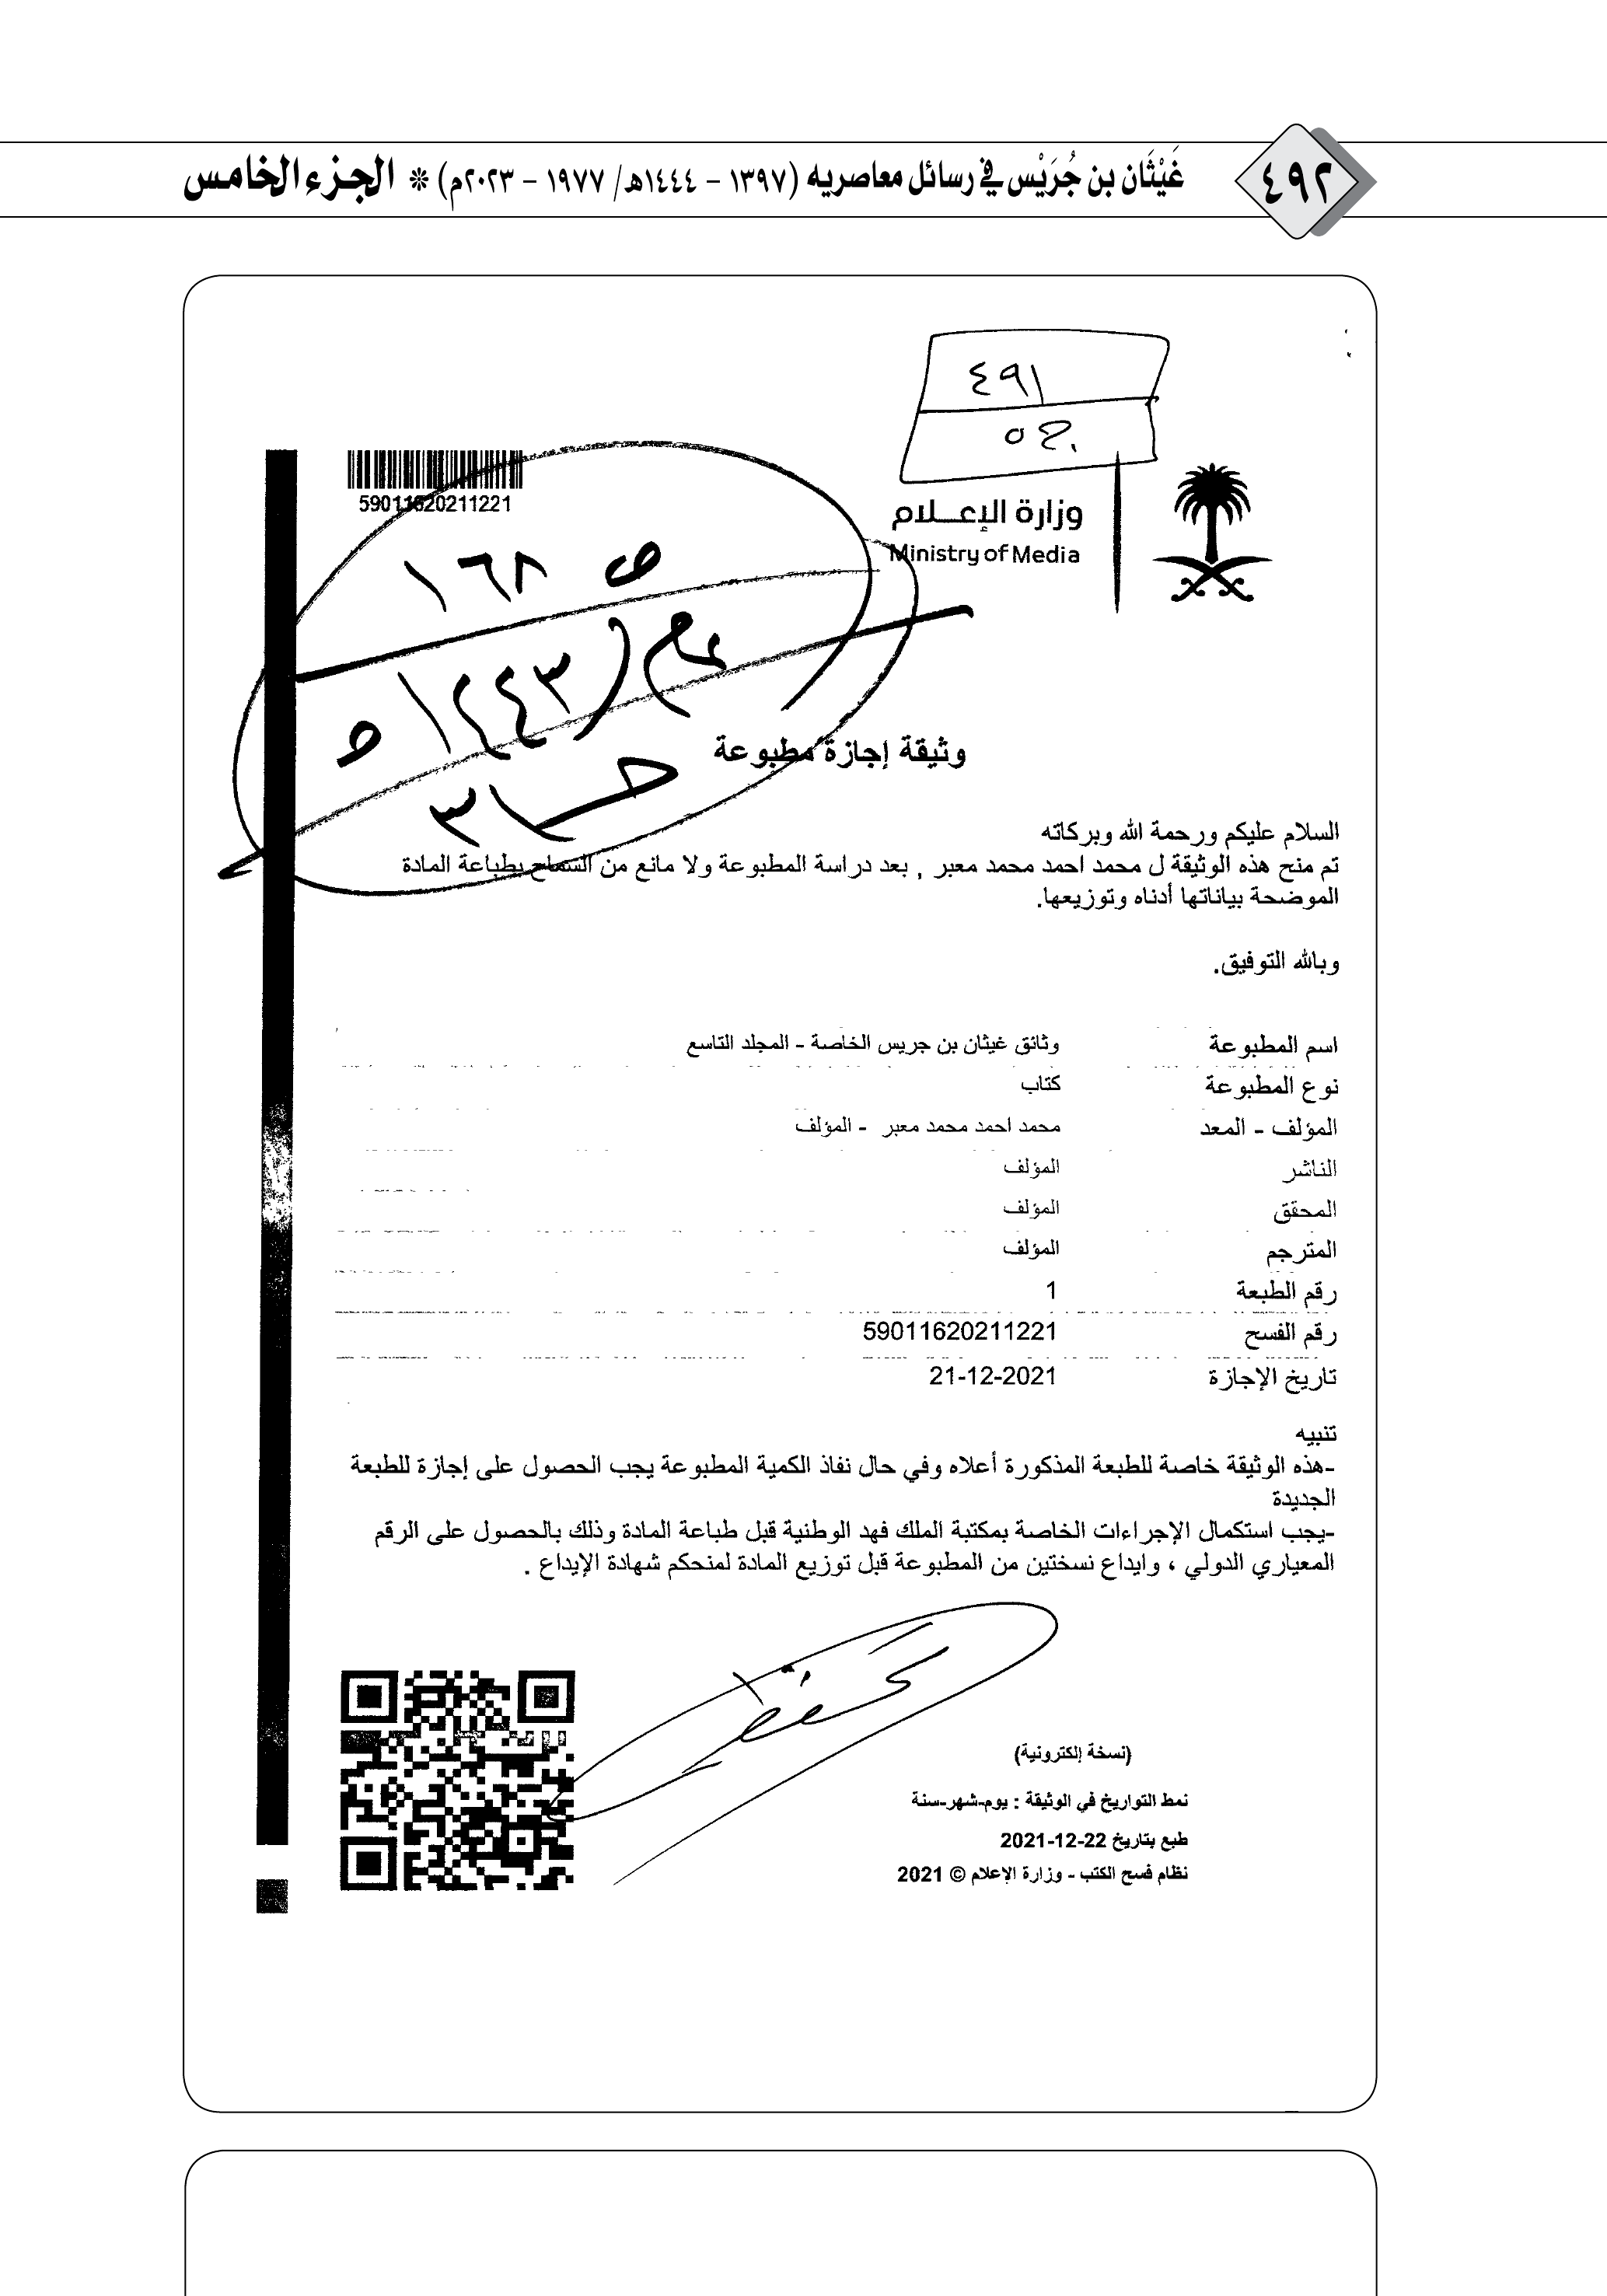 ٤٩٢
غَيْثَان بن جُرَيْس في رسائل معاصريه (١٣٩٧ - ١٤٤٤هـ/ ١٩٧٧ - ٢٠٢٣م) * الجزء الخامس
٤٩١
وزارة الإعـــلام
Ministry of Media
59011620211221
ص ١٦٨
عام (١٤٤٣) هـ
وثيقة إجازة مطبوعة
السلام عليكم ورحمة الله وبركاته
تم منح هذه الوثيقة ل محمد احمد محمد معبر , بعد دراسة المطبوعة ولا مانع من السماح بطباعة المادة
الموضحة بياناتها أدناه وتوزيعها.
وبالله التوفيق.
اسم المطبوعة وثائق غيثان بن جريس الخاصة - المجلد التاسع
نوع المطبوعة كتاب
المؤلف - المعد محمد احمد محمد معبر - المؤلف
الناشر المؤلف
المحقق المؤلف
المترجم المؤلف
رقم الطبعة 1
رقم الفسح 59011620211221
تاريخ الإجازة 21-12-2021
تنبيه
-هذه الوثيقة خاصة للطبعة المذكورة أعلاه وفي حال نفاذ الكمية المطبوعة يجب الحصول على إجازة للطبعة
الجديدة
-يجب استكمال الإجراءات الخاصة بمكتبة الملك فهد الوطنية قبل طباعة المادة وذلك بالحصول على الرقم
المعياري الدولي ، وايداع نسختين من المطبوعة قبل توزيع المادة لمنحكم شهادة الإيداع .
(نسخة إلكترونية)
نمط التواريخ في الوثيقة : يوم-شهر-سنة
طبع بتاريخ 22-12-2021
نظام فسح الكتب - وزارة الإعلام © 2021